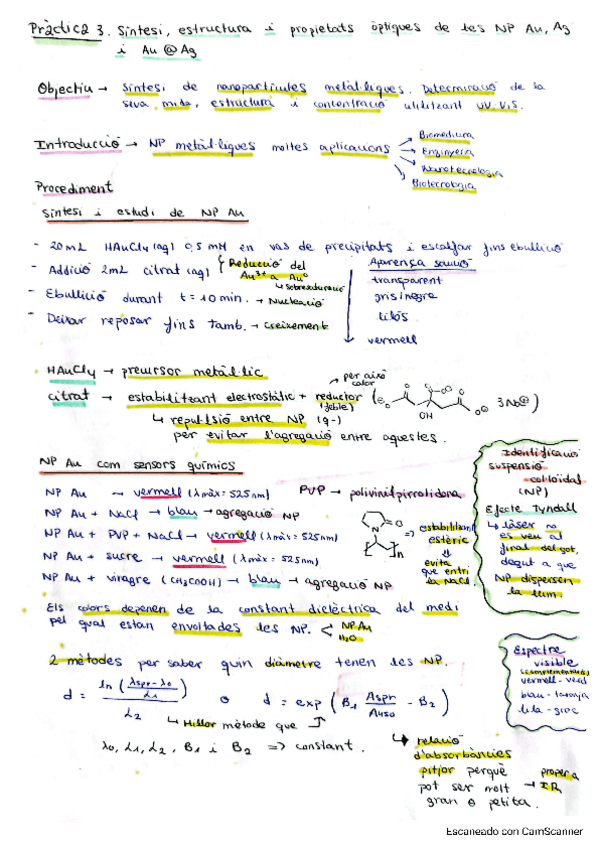 Pràctica 3. Síntesi, estructura i propietats òptiques de les NP Au, Ag
i Au @ Ag
Objectiu → Síntesi de nanopartícules metàl·liques. Determinació de la
seva mida, estructura i concentració utilitzant UV.VIS.
Introducció → NP metàl·liques moltes aplicacions
→ Biomedicina
→ Enginyeria
→ Nanotecnologia
→ Biotecnologia
Procediment
Síntesi i estudi de NP Au
- 20mL HAuCl4 (aq) 0,5 mM en vas de precipitats i escalfar fins ebullició
- Addició 2mL citrat (aq) { Reducció del
Au3+ a Au0
↳ sobresaturació
- Ebullició durant t = 10 min. → Nucleació
- Deixar reposar fins Tamb. → creixement
Aparença solució
transparent
gris/negre
lilós
vermell
HAuCl4 → precursor metàl·lic
citrat → estabilitzant electrostàtic + reductor
(feble)
→ per això
calor
OH
3Na⊕
↳ repulsió entre NP (q-)
per evitar l'agregació entre aquestes.
NP Au com sensors químics
NP Au → vermell (λmàx = 525nm)
NP Au + NaCl → blau → agregació NP
NP Au + PVP + NaCl → vermell (λmàx = 525nm)
NP Au + sucre → vermell (λmàx = 525nm)
NP Au + vinagre (CH3COOH) → blau → agregació NP
PVP → polivinilpirrolidona
⇒ estabilitzant
estèric
⇓
evita
que entri
la NaCl.
Identificació
suspensió
col·loïdal
(NP)
Efecte Tyndall
↳ làser no
es veu al
final del got,
degut a que
NP dispersen
la llum.
Els colors depenen de la constant dielèctrica del medi
pel qual estan envoltades les NP. < NP Au
H2O
2 mètodes per saber quin diàmetre tenen les NP.
d = ln ( λspr - λ0 / L1 ) / L2 o d = exp ( B1 Aspr / A450 - B2 )
↳ Millor mètode que
λ0, L1, L2, B1 i B2 ⇒ constant.
Espectre
visible
(complementaris)
vermell - verd
blau - taronja
lila - groc
↳ relació
d'absorbàncies
pitjor perquè
pot ser molt → propera
IR
gran o petita.
Escaneado con CamScanner